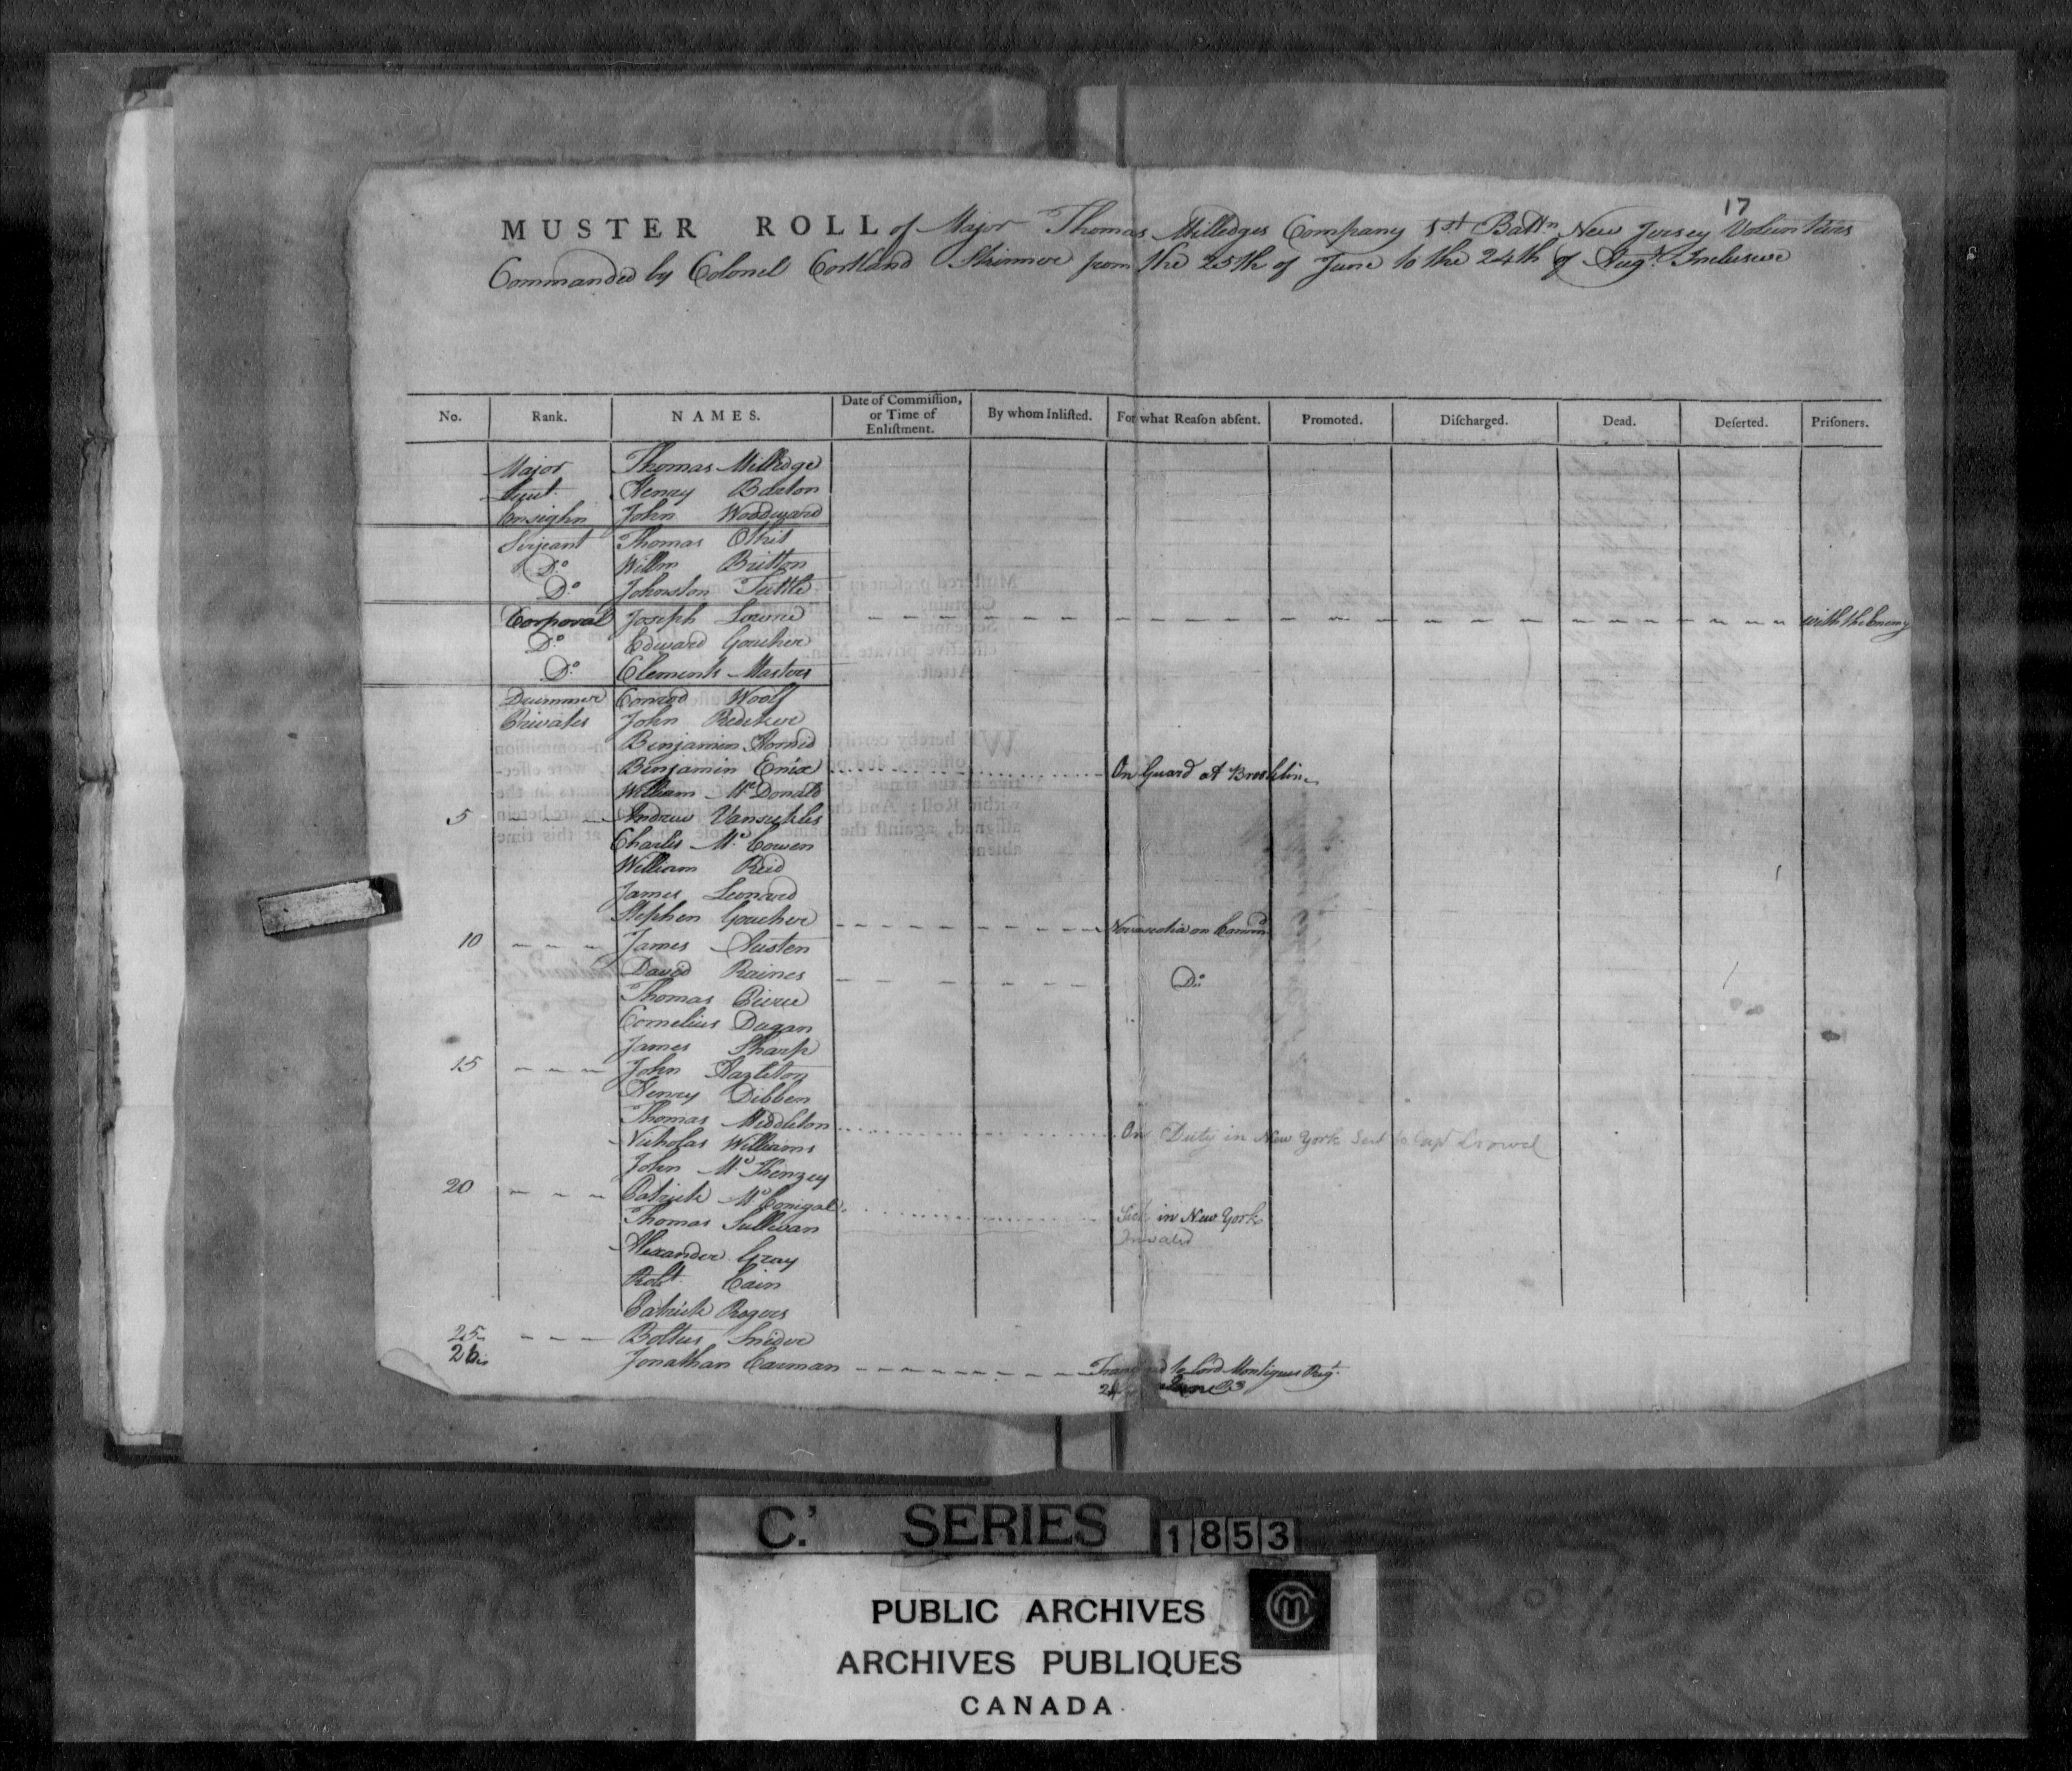 17
MUSTER ROLL of Major Thomas Milledges Company 1st Battn New Jersey Volunteers
Commanded by Colonel Cortland Skinner from the 25th of June to the 24th of Augt. Inclusive
No. Rank. NAMES. Date of Commiſſion, or Time of Enliſtment. By whom Inliſted. For what Reaſon abſent. Promoted. Diſcharged. Dead. Deſerted. Priſoners.
Major Thomas Milledge
Lieut. Henry Barton
Ensighn John Woodward
Serjeant Thomas Othit
Do. Willm Britton
Do. Johnston Tuttle
Corporal Joseph Lorine with the Enemy
Do. Edward Goucher
Do. Clements Masters
Drummer Conrad Woolf
Privates John Rediker
Benjamin Horned
Benjamin Enix On Guard at Brooklin
William Mc.Donald
5 Andrew Vansickles
Charles Mc.Cowen
William Reid
James Leonard
Stephen Goucher Novascotia on Command
10 James Austen
David Raines Do.
Thomas Pierce
Cornelius Dugan
James Sharp
15 John Hazleton
Henry Dibben
Thomas Middleton On Duty in New York Sert to Capt Crowel
Nicholas Williams
John Mc.Kenzey
20 Patrick Mc.Conigal Sick in New York
Thomas Sullivan Invalid
Alexander Gray
Robt. Cain
Patrick Rogers
25 Boltus Snider
26 Jonathan Carman to Lord Montigues Regt.
June 83
C.' SERIES 1853
PUBLIC ARCHIVES
ARCHIVES PUBLIQUES
CANADA